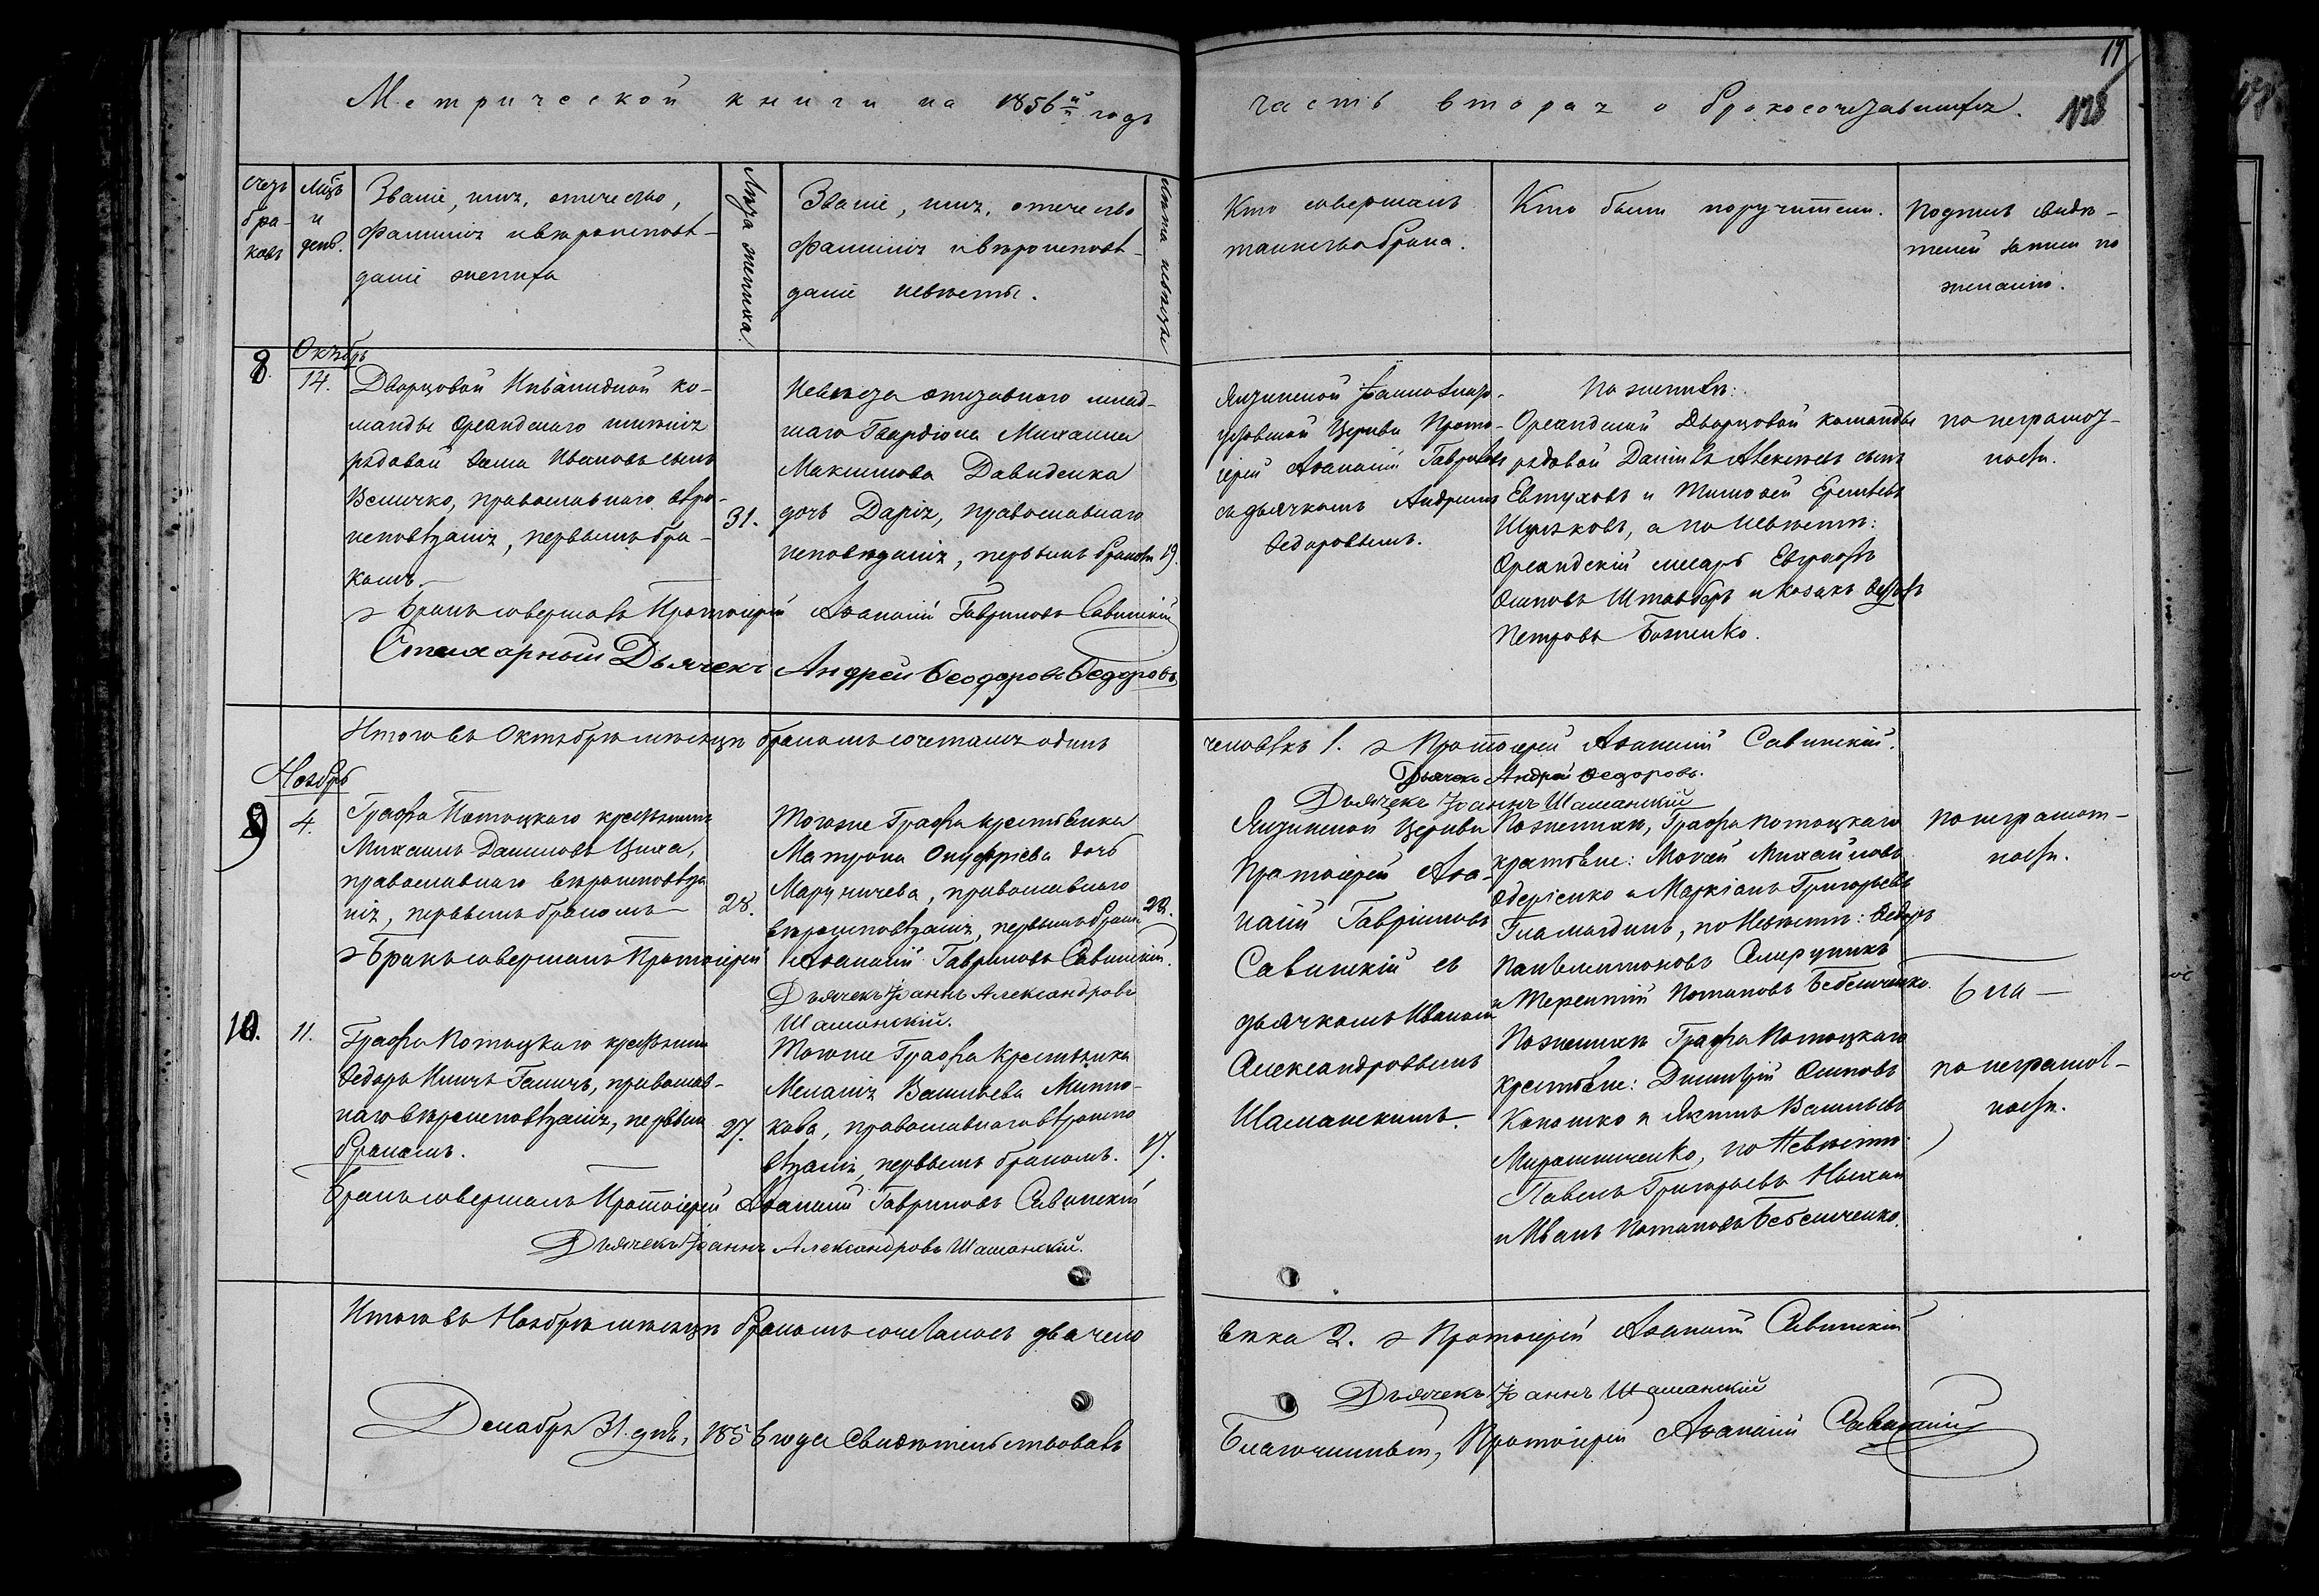 19
Метрической книги на 1856й годъ
часть вторая о бракосочетавшихся.
Счетъ бра-
ковъ
Мѣцъ
и
день.
Званіе, имя, отчество,
фамилія и вѣроисповѣ-
даніе жениха
Лѣта жениха.
Званіе, имя, отчество
фамилія и вѣроисповѣ-
даніе невѣсты.
Лѣта невѣсты
Кто совершалъ
таинство брака.
Кто были поручители.
Подпись свидѣ-
телей записи по
желанію.
8.
Октябрь
14.
Дворцовой Инвалидной ко-
манды Ореандскаго имѣнія
рядовой Ѳома Ивановъ сынъ
Величко, православнаго вѣро-
исповѣданія, первымъ бра-
комъ.
31.
Невѣста отставнаго млад-
шаго Гвардіона Михаила
Максимова Давиденка
дочь Дарія, православнаго
исповѣданія, первымъ бракомъ
19.
Ялтинской Іоанно-Злато-
устовской Церкви Прото-
іерей Аѳанасій Гавриловъ
съ дьячкомъ Андреемъ
Ѳедоровымъ.
По женихѣ:
Ореандской Дворцовой команды
рядовой Даніилъ Алексѣевъ сынъ
Евтуховъ и Тимоѳей
а по невѣстѣ:
Ореандскій слесарь
Осиповъ и козакъ
Петровъ Боженко.
по неграмот-
ности.
Бракъ совершалъ Протоіерей Аѳанасій Гавриловъ Савинскій
Стихарный Дьячекъ Андрей Ѳеодоровъ Ѳедоровъ
Итого въ Октябрѣ мѣсяцѣ бракомъ сочетался одинъ
человѣкъ 1. Протоіерей Аѳанасій Савинскій.
Дьячекъ Андрей Ѳедоровъ.
Дьячекъ Іоаннъ Шаманскій
Ноябрь
9
4.
Графа Потоцкаго крестьянинъ
Михаилъ Даниловъ Циха,
православнаго вѣроисповѣда
нія, первымъ бракомъ
28.
Тогоже Графа крестьянка
Матрона Онуфріева дочь
Маруничева, православнаго
вѣроисповѣданія, первымъ бракомъ
22.
Ялтинской Церкви
Протоіерей Аѳа-
насій Гавриловъ
Савинскій съ
дьячкомъ Иваномъ
Александровымъ
Шаманскимъ.
По женихѣ, Графа Потоцкаго
крестьяне: Моисей Михайловъ
и Маркіанъ Григорьевъ
по невѣстѣ: Ѳедоръ
Пантелимоновъ
и Терентій Потаповъ Бебешченко.
по неграмот-
ности.
Бракъ совершалъ Протоіерей Аѳанасій Гавриловъ Савинскій.
Дьячекъ Іоаннъ Александровъ
Шаманскій.
10.
11.
Графа Потоцкаго крестьянинъ
Ѳедоръ Ильичъ Галичъ, православ-
наго вѣроисповѣданія, первымъ
бракомъ.
27.
Тогоже Графа крестьянка
Меланія Васильева
православнаго вѣроиспо
вѣданія, первымъ бракомъ.
17.
По женихѣ Графа Потоцкаго
крестьяне: Димитрій Осиповъ
Кononко и Акимъ Васильевъ
Мирошниченко, по невѣстѣ:
Павелъ Григорьевъ
и Иванъ Потаповъ Бебешченко.
по неграмот-
ности.
Бракъ совершалъ Протоіерей Аѳанасій Гавриловъ Савинскій
Дьячекъ Іоаннъ Александровъ Шаманскій.
Итого въ Ноябрѣ мѣсяцѣ бракомъ сочеталось два чело
вѣка 2. Протоіерей Аѳанасій Савинскій
Дьячекъ Іоаннъ Шаманскій
Декабря 31. дня, 1856 года свидѣтельствовалъ
Благочинный, Протоіерей Аѳанасій Савинскій